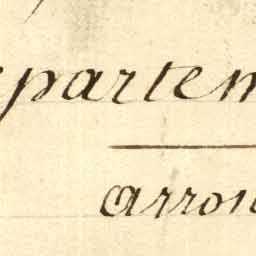 epartem
arron